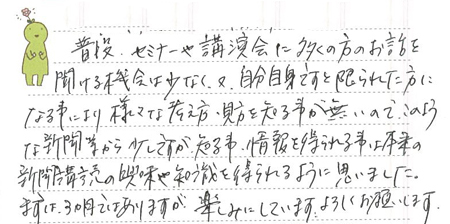 普段、セミナーや講演会に多くの方のお話を
聞ける機会は少なく、又、自分自身ですと限られた方に
なる事により様々な考え方・見方を知る事が無いので、このよう
な新聞等から少しですが、知る事、情報を得られる事は本業の
新聞購読の興味や知識を得られるように思いました。
まずは、3ヵ月ではありますが 楽しみにしています。よろしくお願いします。